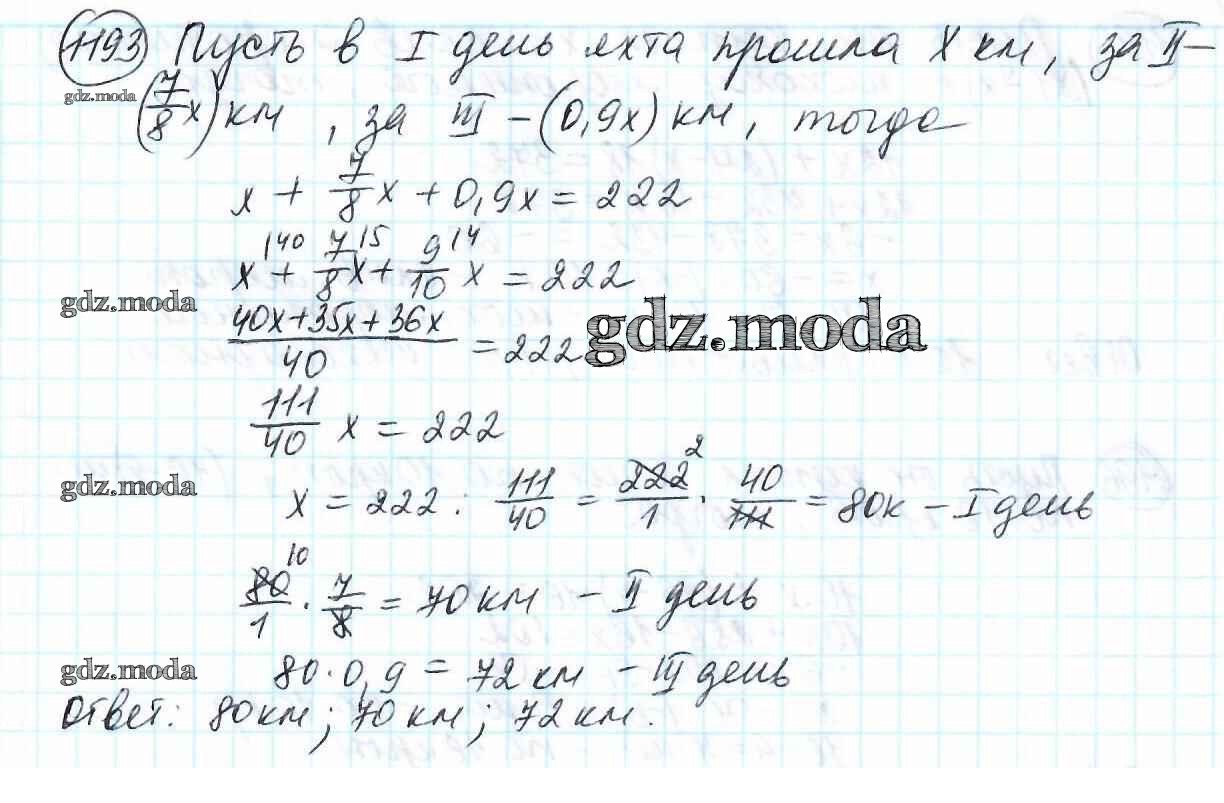 1193 Пусть в I день яхта прошла x км, за II –
gdz.moda
(7/8 x) км, за III – (0,9x) км, тогда
x + 7/8 x + 0,9x = 222
x \40 + 7/8 x \5 + 9/10 \4 x = 222
gdz.moda
gdz.moda
(40x+35x+36x)/40 = 222
111/40 x = 222
gdz.moda
x = 222 : 111/40 = 222/1 2 · 40/111 = 80к – I день
80/1 10 · 7/8 = 70 км – II день
gdz.moda
80 · 0,9 = 72 км – III день
Ответ: 80 км; 70 км; 72 км.